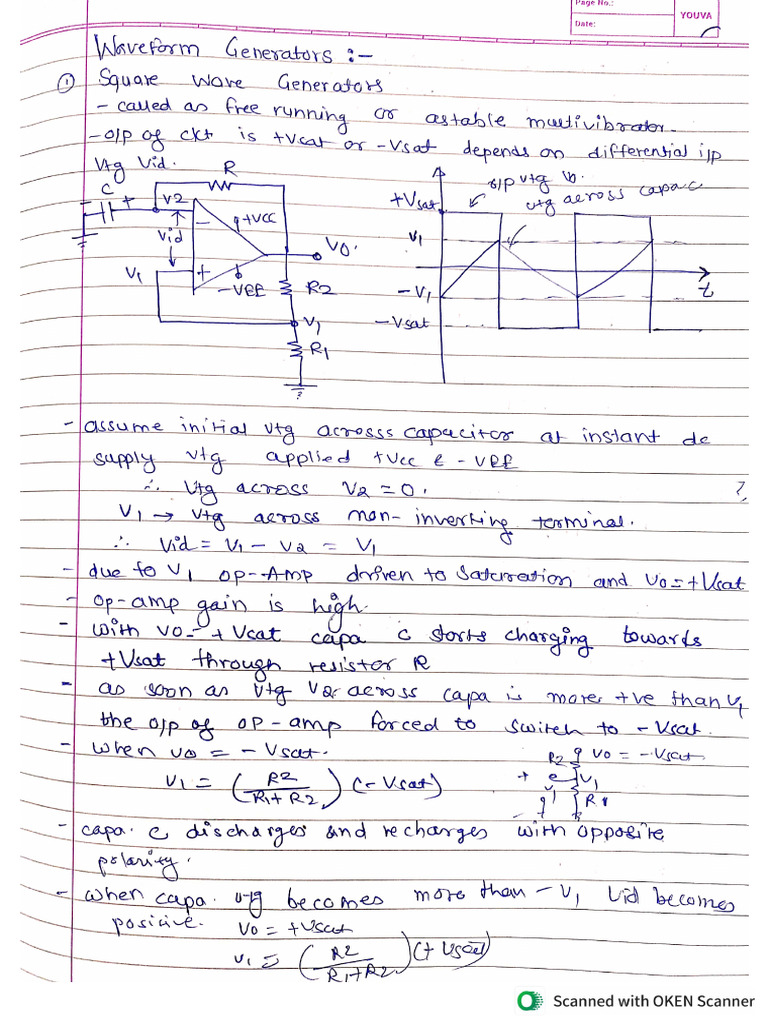 Page No.:
Date:
YOUVA
Waveform Generators :-
① Square Wave Generators
- called as free running or astable multivibrator.
- o/p of ckt is +Vsat or -Vsat depends on differential i/p
Vtg Vid.
R
C
+
V2
-
+VCC
Vid
VO.
V1
+
-VEE
R2
V1
R1
o/p vtg Vo.
vtg across capac
+Vsat
V1
-V1
-Vsat
t
- assume initial vtg acrosss capacitor at instant dc
supply vtg applied +Vcc & -VEE
∴ Vtg across V2 = 0.
V1 → vtg across non-inverking terminal.
∴ Vid = V1 - V2 = V1
- due to V1 op-Amp driven to saturation and Vo = +Vsat
- op-amp gain is high.
- with VO = + Vsat capa C starts charging towards
+Vsat through resistor R
- as soon as vtg V2 across capa is more +ve than V1
the o/p of op-amp forced to switch to -Vsat.
- when vo = - Vsat.
V1 = (R2 / R1+R2) (-Vsat)
R2
Vo = -Vsat
+
V1
R1
-
- capa. C discharges and recharges with opposite
polarity.
- when capa. vtg becomes more than -V1 Vid becomes
posicive. Vo = +Vsat
V1 = (R2 / R1+R2) (+Vsat)
Scanned with OKEN Scanner